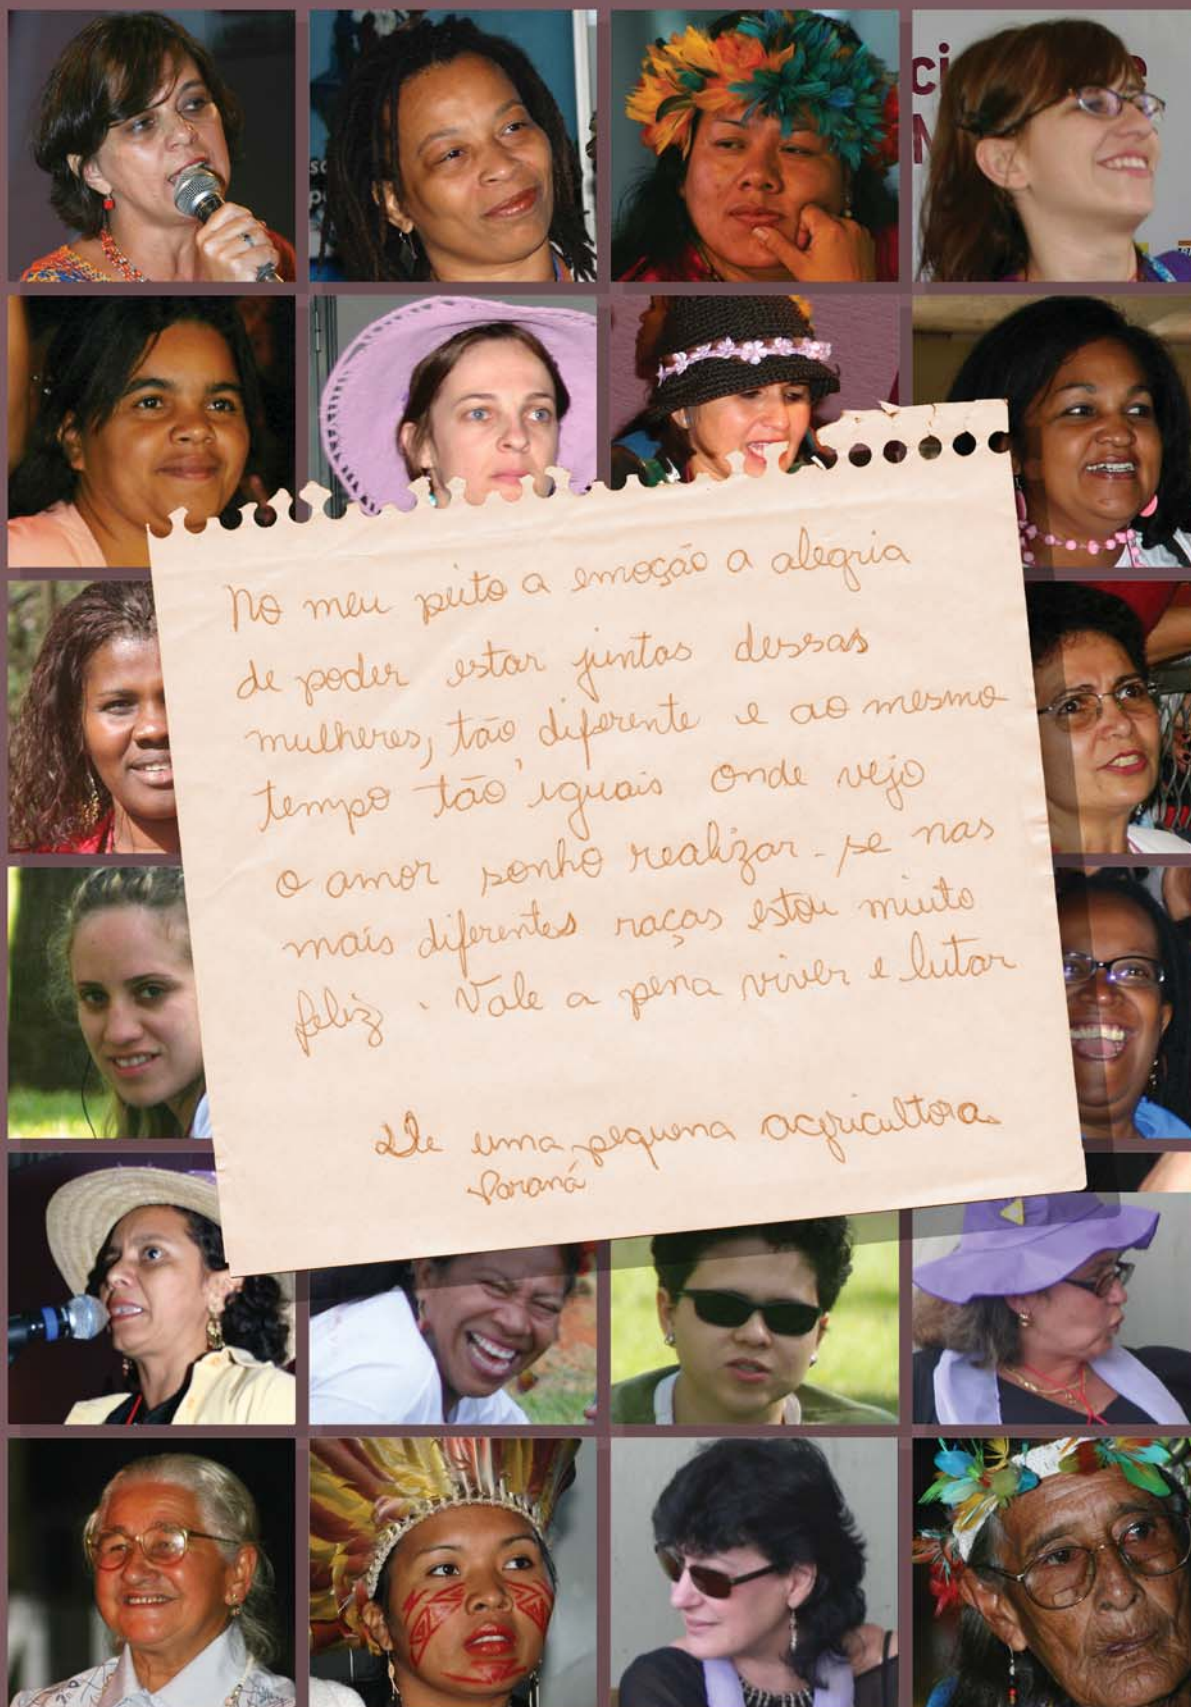 No meu peito a emoção a alegria
de poder estar juntas dessas
mulheres, tão diferente e ao mesmo
tempo tão iguais onde vejo
o amor sonho realizar-se nas
mais diferentes raças estou muito
feliz. Vale a pena viver e lutar
De uma pequena agricultora
Paraná